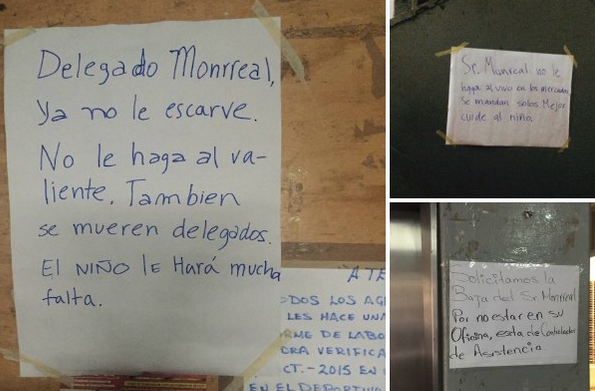 Delegado Monrreal,
Ya no le escarve.
No le haga al va-
liente. Tambien
se mueren delegados.
El NIÑO lE Hará mucha
falta.
A TE
ODOS LOS AG
LES HACE UNA
RME DE LABO
ORA VERIFICA
CT.-2015 EN
EN EL DEPORTIV
Sr. Monreal no le
haga al vivo en los mercados
Se mandan solos. Mejor
cuide al niño.
Solicitamos la
Baja del Sr Monrreal
Por no estar en su
Oficina, esta de Controlador
de Asistencia